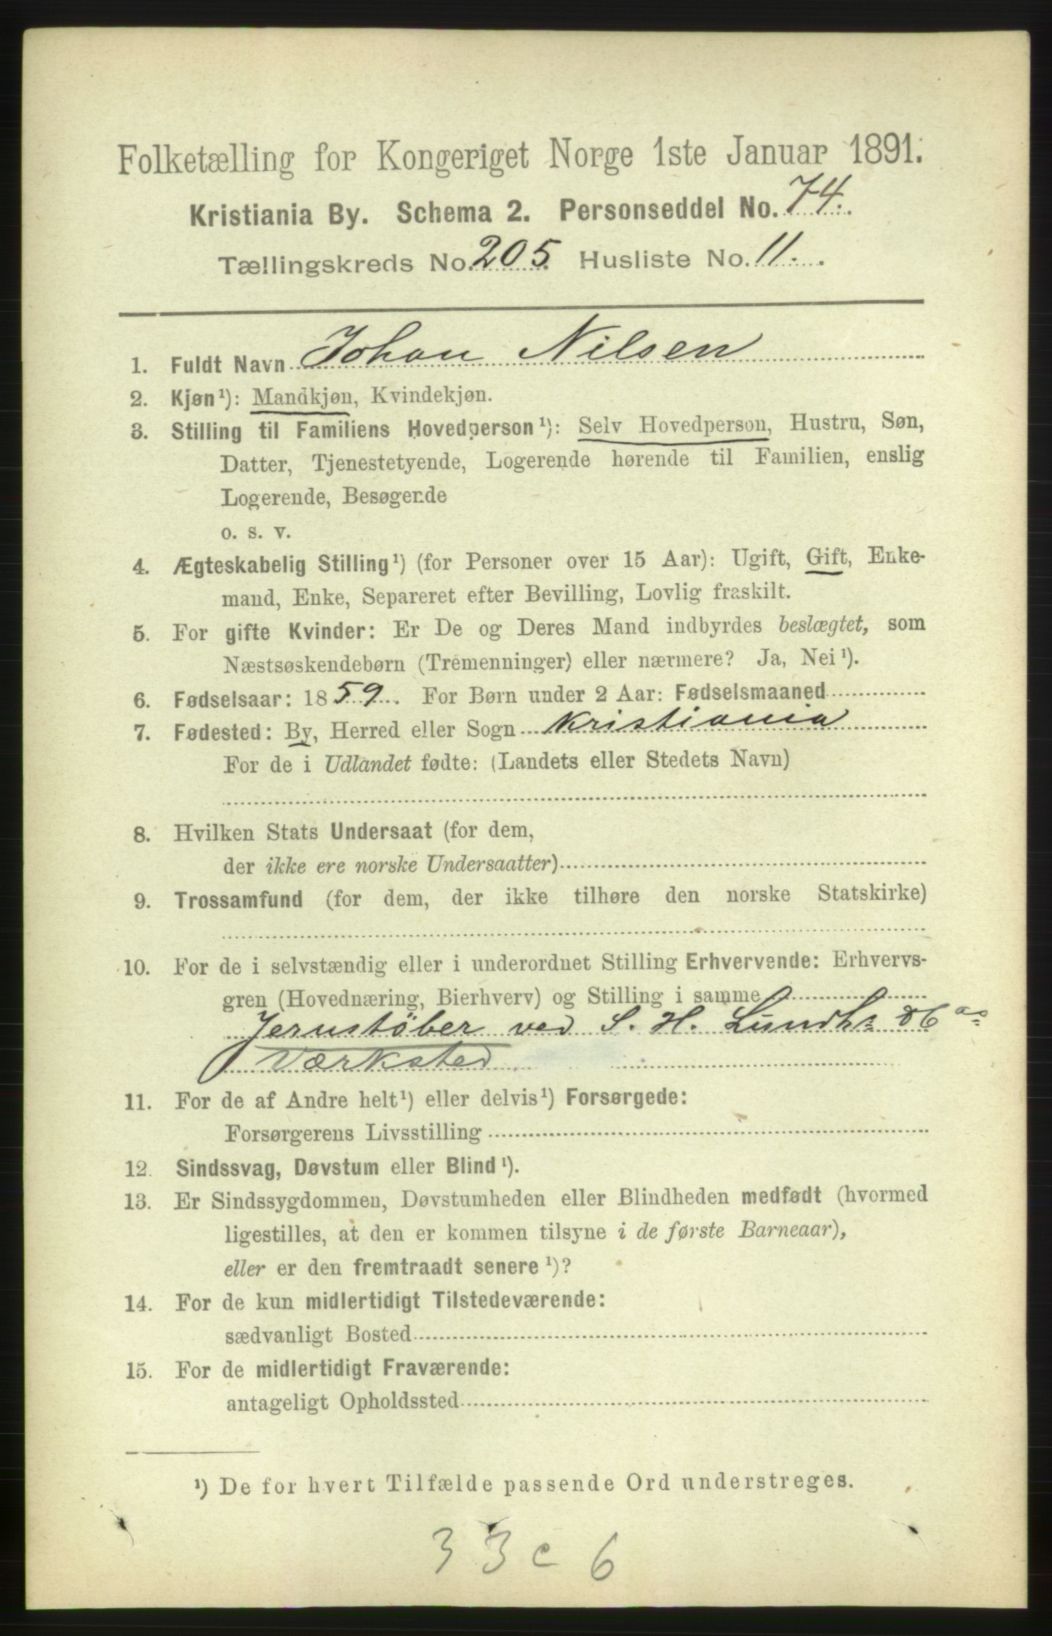 Folketælling for Kongeriget Norge 1ste Januar 1891.
Kristiania By. Schema 2. Personseddel No. 74.
Tællingskreds No. 205. Husliste No. 11.
1. Fuldt Navn Johan Nilsen
2. Kjøn¹): Mandkjøn, Kvindekjøn.
3. Stilling til Familiens Hovedperson¹): Selv Hovedperson, Hustru, Søn,
Datter, Tjenestetyende, Logerende hørende til Familien, enslig
Logerende, Besøgende
o. s. v.
4. Ægteskabelig Stilling¹) (for Personer over 15 Aar): Ugift, Gift, Enke-
mand, Enke, Separeret efter Bevilling, Lovlig fraskilt.
5. For gifte Kvinder: Er De og Deres Mand indbyrdes beslægtet, som
Næstsøskendebørn (Tremenninger) eller nærmere? Ja, Nei¹).
6. Fødselsaar: 1859. For Børn under 2 Aar: Fødselsmaaned
7. Fødested: By, Herred eller Sogn Kristiania
For de i Udlandet fødte: (Landets eller Stedets Navn)
8. Hvilken Stats Undersaat (for dem,
der ikke ere norske Undersaatter)
9. Trossamfund (for dem, der ikke tilhøre den norske Statskirke)
10. For de i selvstændig eller i underordnet Stilling Erhvervende: Erhvervs-
gren (Hovednæring, Bierhverv) og Stilling i samme
Jernstöber ved S. H. Lundhs &
Værksted
11. For de af Andre helt¹) eller delvis¹) Forsørgede:
Forsørgerens Livsstilling
12. Sindssvag, Døvstum eller Blind¹).
13. Er Sindssygdommen, Døvstumheden eller Blindheden medfødt (hvormed
ligestilles, at den er kommen tilsyne i de første Barneaar),
eller er den fremtraadt senere¹)?
14. For de kun midlertidigt Tilstedeværende:
sædvanligt Bosted
15. For de midlertidigt Fraværende:
antageligt Opholdssted
¹) De for hvert Tilfælde passende Ord understreges.
33 c 6